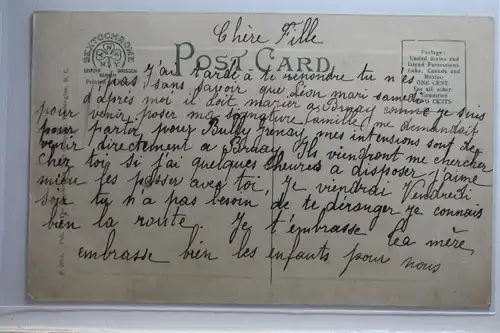 Chère Fille
SEXTOCHROME
POST CARD
LEIPZIG DRESDEN
BERLIN
Postage:
United States and
Island Possessions
Cuba, Canada and
Mexico
ONE CENT.
For all other
Countries
TWO CENTS.
pas j'ai tardé a te repondre tu n'es
sans savoir que Léon mari samedi
d'après moi il doit marier a comme je suis
pour venir poser ma signature famille me demandait
pour partir pour Bully Grenay, mes intensions sont de
venir directement a Ils viendront me chercher
chez toi si j'ai quelques heures a disposer j'aime
mieu les passer avec toi, Je viendrai Vendredi
soir tu n'a pas besoin de te déranger je connais
bien la route. Je t'embrasse
ta mère
embrasse bien les enfants pour nous